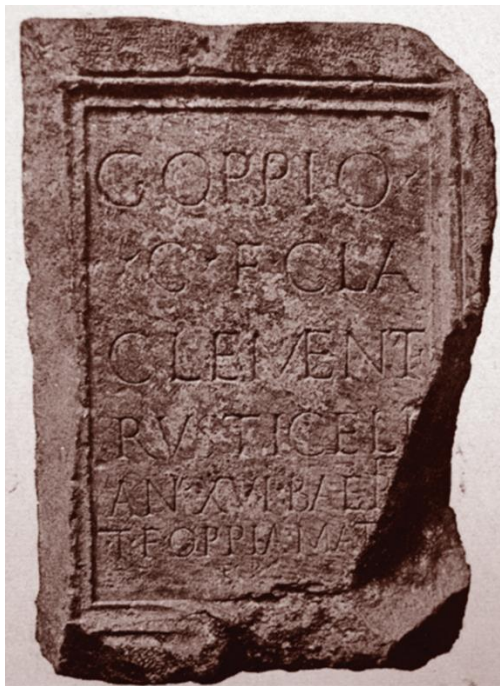 C OPPIO
C F CLA
CLEMENT
RVSTICELL
AN XVI BAEB
T F OPPIA MAT